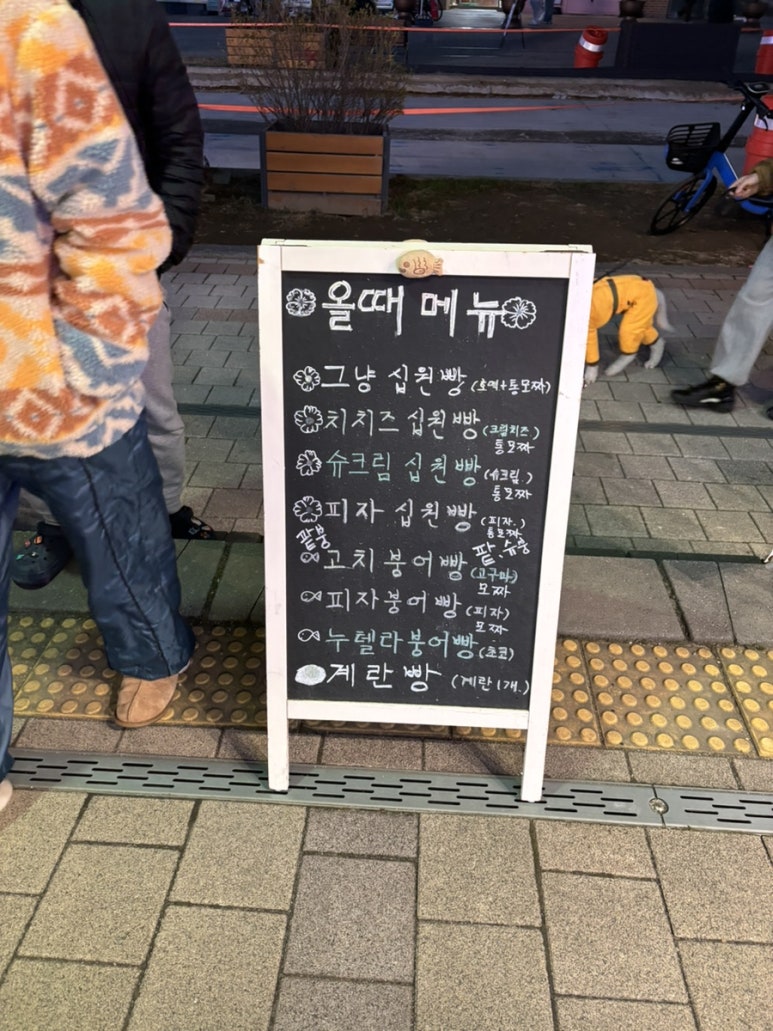 올때 메뉴
그냥 십원빵 (호떡+통모짜)
치치즈 십원빵 (크림치즈.)
통모짜
슈크림 십원빵 (슈크림.)
통모짜
피자 십원빵 (피자.)
통모짜
팥붕
팥.슈붕
고치붕어빵 (고구마)
모짜
피자붕어빵 (피자)
모짜
누텔라붕어빵 (초코)
계란빵 (계란1개.)